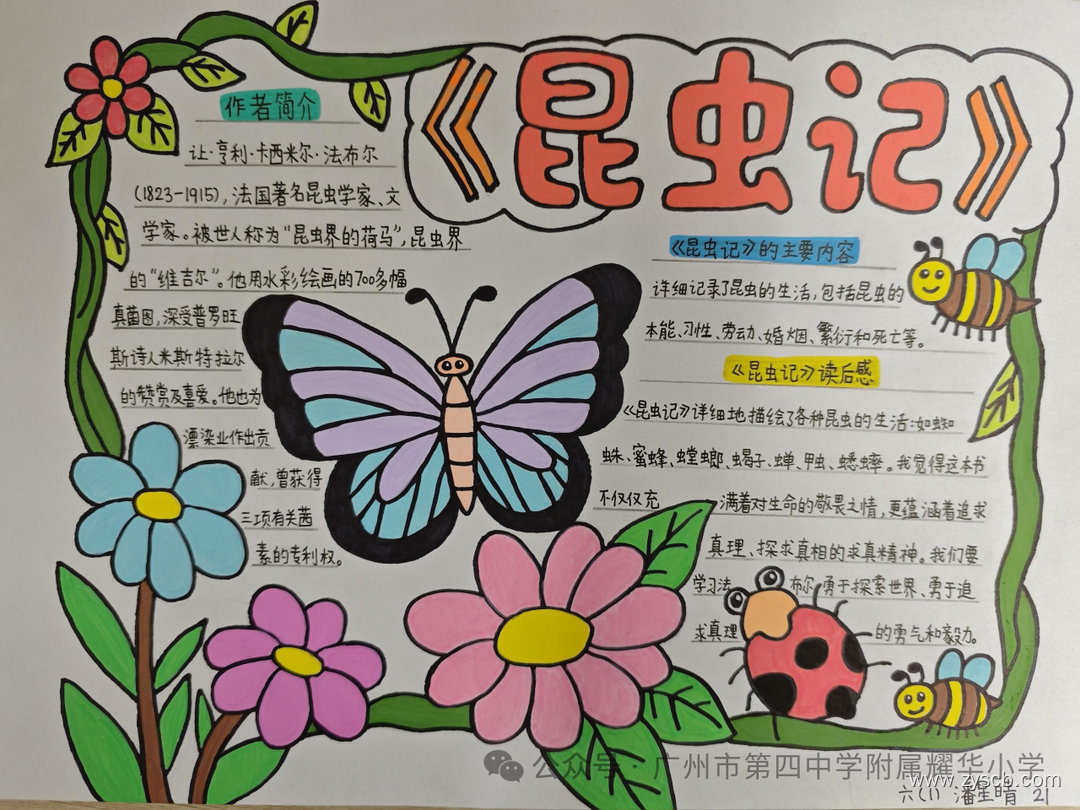 《昆虫记》
作者简介
让·亨利·卡西米尔·法布尔
(1823-1915),法国著名昆虫学家、文
学家。被世人称为“昆虫界的荷马”,昆虫界
的“维吉尔”。他用水彩绘画的700多幅
真菌图,深受普罗旺
斯诗人米斯特拉尔
的赞赏及喜爱。他也为
漂染业作出贡
献,曾获得
三项有关茜
素的专利权。
《昆虫记》的主要内容
详细记录了昆虫的生活,包括昆虫的
本能、习性、劳动、婚烟、繁衍和死亡等。
《昆虫记》读后感
《昆虫记》详细地描绘了各种昆虫的生活:如蜘
蛛、蜜蜂、螳螂、蝎子、蝉、甲虫、蟋蟀。我觉得这本书
不仅仅充满着对生命的敬畏之情,更蕴涵着追求
真理、探求真相的求真精神。我们要
学习法布尔勇于探索世界、勇于追
求真理的勇气和毅力。
公众号·广州市第四中学附属耀华小学
www.zyscb.com
六(1) 潘星晴 21